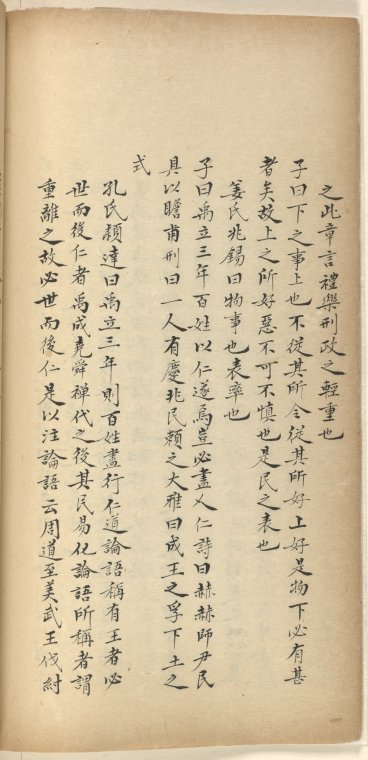 之此章言禮樂刑政之輕重也
子曰下之事上也不從其所令從其所好上好是物下必有甚
者矣故上之所好惡不可不慎也是民之表也
姜氏兆錫曰物事也表率也
子曰禹立三年百姓以仁遂焉豈必盡人仁詩曰赫赫師尹民
具以瞻甫刑曰一人有慶兆民賴之大雅曰成王之孚下土之
式
孔氏穎達曰禹立三年則百姓盡行仁道論語稱有王者必
世而後仁者禹成堯舜禅代之後其民易化論語所稱者謂
重離之故必世而後仁是以注論語云周道至美武王伐紂